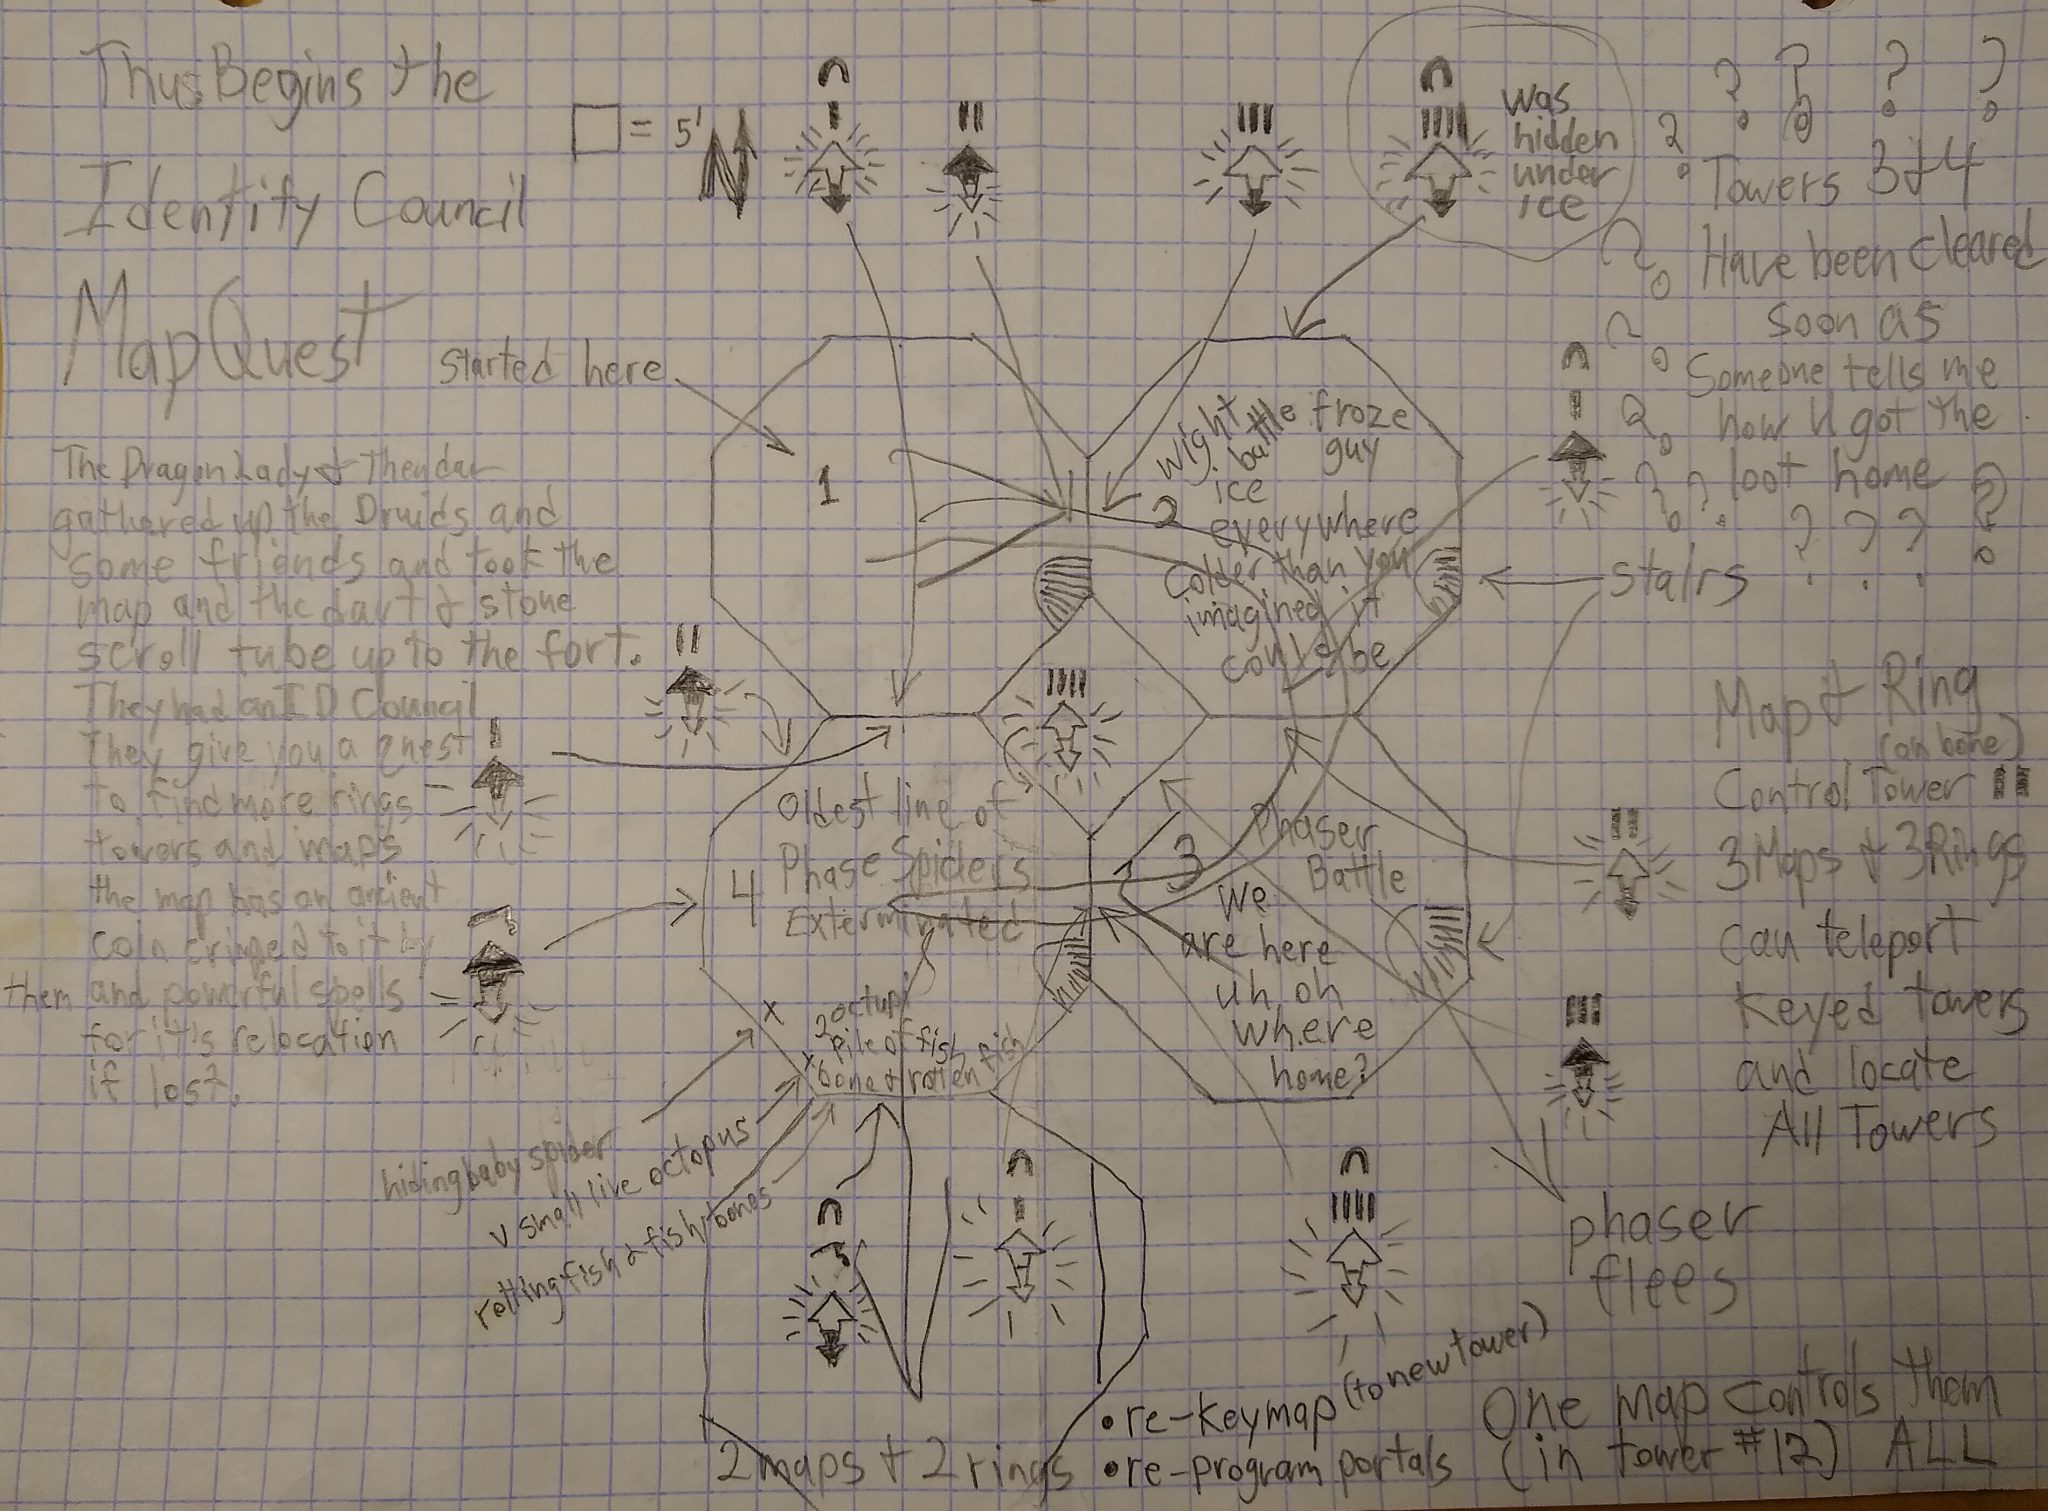 Thus Begins the
Identity Council
MapQuest
□ = 5'
N
was
hidden
under
ice
? ? ? ? ?
Towers 3 & 4
Have been cleared
soon as
Someone tells me
how U got the
loot home
? ? ? ?
started here
The Dragon Lady & Thendar
gathered up the Druids and
some friends and took the
map and the dart & stone
scroll tube up to the fort.
They had an ID Council
They give you a quest
to find more rings
towers and maps
the map has an ancient
coin cringed to it by
them and powerful spells
for it's relocation
if lost.
1
2
wight
battle
ice
froze
guy
everywhere
colder than you
imagined it
could be
stairs
Map & Ring
(on bone)
Control Tower
3 Maps & 3 Rings
can teleport
Keyed towers
and locate
All Towers
Oldest line of
4 Phase Spiders
Exterminated
3
Phaser
Battle
We
are here
uh oh
where
home?
x
2 octupi
x pile of fish
bone & rotten fish
hiding baby spider
v small live octopus
rotting fish & fish bones
phaser
flees
2 maps & 2 rings
• re-key map (to new tower)
• re-program portals
One map controls them
(in tower #12) ALL